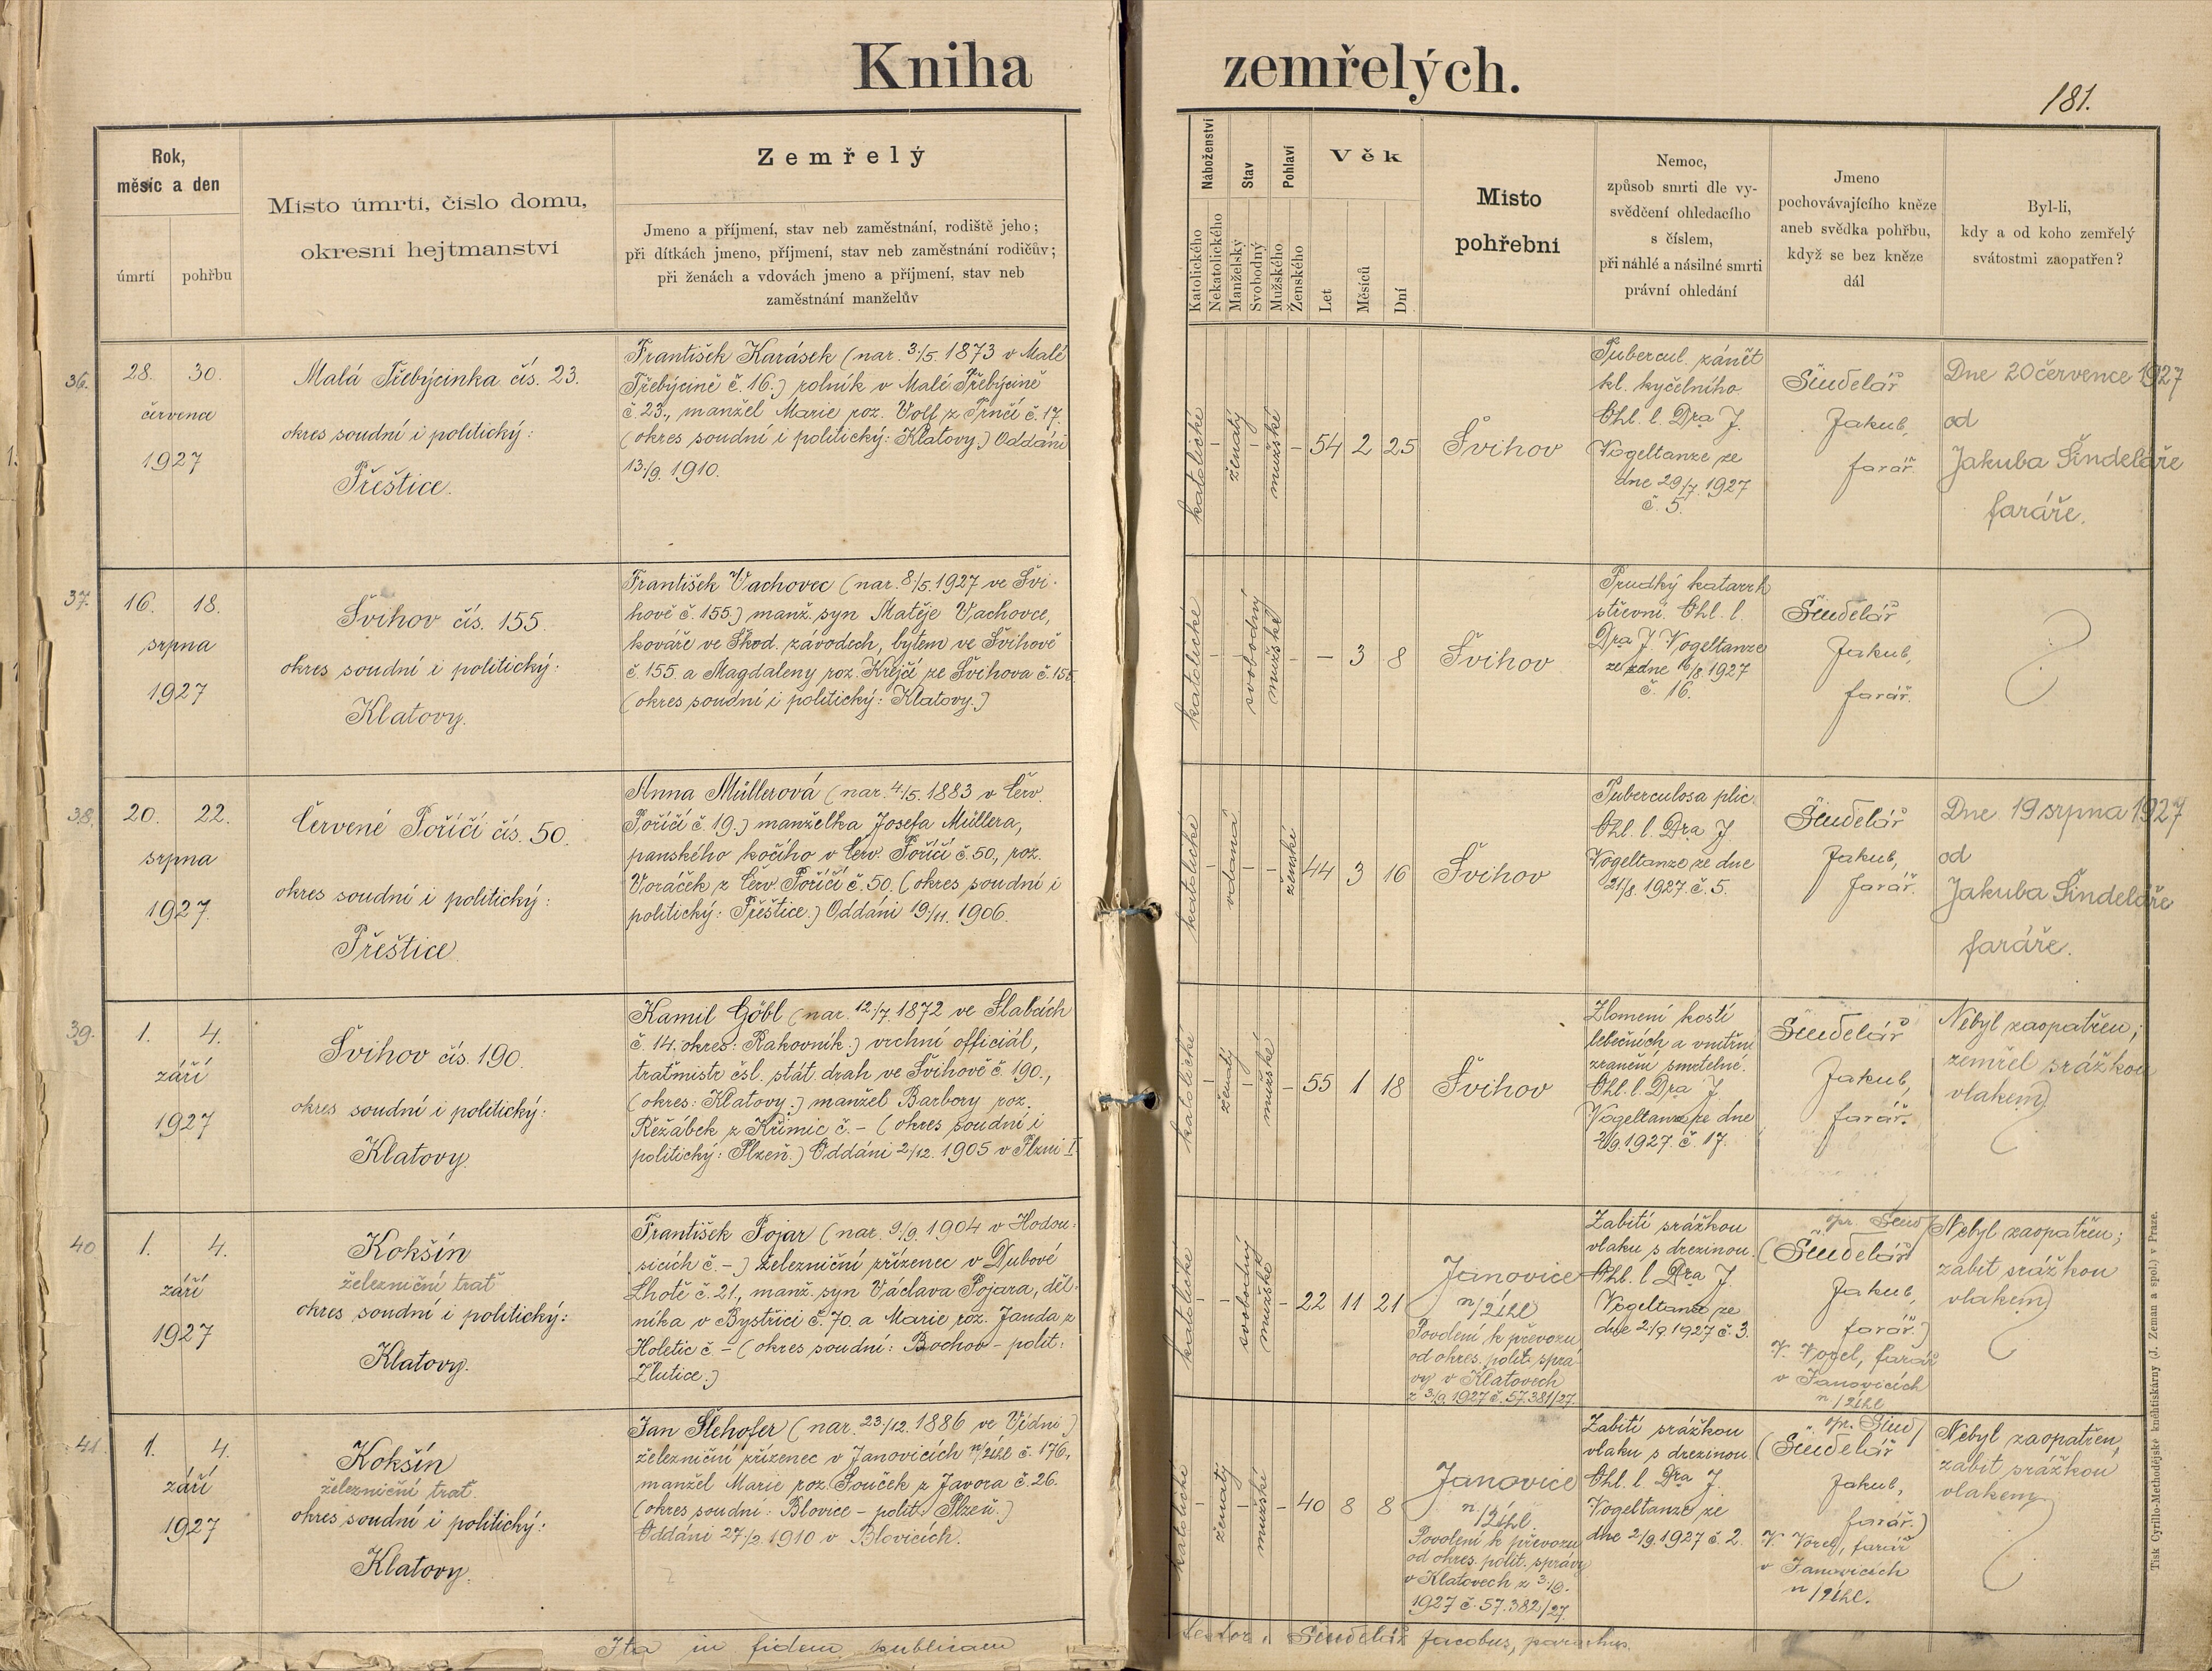 Kniha zemřelých.
181.
Rok,
měsíc a den
úmrtí
pohřbu
Misto úmrti, čislo domu,
okresni hejtmanstvi
Zemřelý
Jmeno a příjmení, stav neb zaměstnání, rodiště jeho;
při dítkách jmeno, příjmení, stav neb zaměstnání rodičův;
při ženách a vdovách jmeno a příjmení, stav neb
zaměstnání manželův
Náboženství
Katolického
Nekatolického
Stav
Manželský
Svobodný
Pohlaví
Mužského
Ženského
Věk
Let
Měsíců
Dní
Misto
pohřebni
Nemoc,
způsob smrti dle vy-
svědčení ohledacího
s číslem,
při náhlé a násilné smrti
právní ohledání
Jmeno
pochovávajícího kněze
aneb svědka pohřbu,
když se bez kněze
dál
Byl-li,
kdy a od koho zemřelý
svátostmi zaopatřen?
36.
28. 30.
července
1927
Malá Třebýcinka čís. 23.
okres soudní i politický:
Přeštice.
František Karásek (nar. 3./5. 1873 v Malé
Třebýcině č. 16.) rolník v Malé Třebýcině
č. 23., manžel Marie roz. Volf z Trnčí č. 17.
(okres soudní i politický: Klatovy.) Oddáni
13./9. 1910.
katolické - ženatý - mužské - 54 2 25
Švihov
Tubercul. zánět
kl. kyčelního
Ohl. l. Dra J.
Vogeltanze ze
dne 29/7. 1927
č. 5.
Šindelář
Jakub,
farář.
Dne 20 července 1927
od
Jakuba Šindeláře
faráře.
37.
16. 18.
srpna
1927
Švihov čís. 155.
okres soudní i politický:
Klatovy.
František Vachovec (nar. 8./5. 1927 ve Švi-
hově č. 155.) manž. syn Matěje Vachovce,
kováře ve Škod. závodech, bytem ve Švihově
č. 155. a Magdaleny roz. Krejčí ze Švihova č. 155.
(okres soudní i politický: Klatovy.)
katolické - - svobodný mužské - - 3 8
Švihov
Prudký katarrh
střevní. Ohl. l.
Dra J. Vogeltanze
ze dne 16/8. 1927
č. 16.
Šindelář
Jakub,
farář.
38.
20. 22.
srpna
1927
Červené Poříčí čís. 50.
okres soudní i politický:
Přeštice
Anna Müllerová (nar. 4./5. 1883 v Červ.
Poříčí č. 19.) manželka Josefa Müllera,
panského kočího v Červ. Poříčí č. 50., roz.
Voráček z Červ. Poříčí č. 50. (okres soudní i
politický: Přeštice.) Oddáni 19./11. 1906.
katolické - vdaná - - ženské 44 3 16
Švihov
Tuberculosa plic.
Ohl. l. Dra J.
Vogeltanze ze dne
21/8. 1927. č. 5.
Šindelář
Jakub,
farář.
Dne 19 srpna 1927
od
Jakuba Šindeláře
faráře.
39.
1. 4.
září
1927
Švihov čís. 190.
okres soudní i politický:
Klatovy.
Kamil Göbl (nar. 12./7. 1872 ve Slabcích
č. 14. okres: Rakovník.) vrchní officiál,
traťmistr čsl. stát. drah ve Švihově č. 190.,
(okres: Klatovy.) manžel Barbory roz.
Řežábek z Křimic č. - (okres soudní i
politický: Plzeň.) Oddáni 2/12. 1905 v Plzni I.
katolické - ženatý - mužské - 55 1 18
Švihov
Zlomení kostí
lebečních a vnitřní
zranění smrtelné.
Ohl. l. Dra J.
Vogeltanze ze dne
2/9. 1927. č. 17.
Šindelář
Jakub,
farář.
Nebyl zaopatřen;
zemřel srážkou
vlakem)
40.
1. 4.
září
1927
Kokšín
železniční trať
okres soudní i politický:
Klatovy.
František Pojar (nar. 9./9. 1904 v Hodou-
sicích č. -) železniční zřízenec v Dubové
Lhotě č. 21., manž. syn Václava Pojara, děl-
níka v Bystřici č. 70. a Marie roz. Janda z
Holetic č - (okres soudní: Bochov - polit:
Žlutice.)
katolické - - svobodný mužské - 22 11 21
Janovice
n/Úhl
Povolení k převozu
od okres. polit. sprá-
vy v Klatovech
z 3/9. 1927 č. 57.381/27.
Zabití srážkou
vlaku s drezinou.
Ohl. l. Dra J.
Vogeltanze ze
dne 2/9. 1927 č. 3.
opr. Šind
(Šindelář
Jakub,
farář.)
V. Vorel, farář
v Janovicích
n/Úhl
Nebyl zaopatřen;
zabit srážkou
vlakem)
41.
1. 4.
září
1927
Kokšín
železniční trať.
okres soudní i politický:
Klatovy.
Jan Šlehofer (nar. 23./12. 1886 ve Vídni)
železniční zřízenec v Janovicích n/Úhl č. 176,
manžel Marie roz. Souček z Javora č. 26.
(okres soudní: Blovice - polit. Plzeň.)
Oddáni 27/2. 1910 v Blovicích.
katolické - ženatý - mužské - 40 8 8
Janovice
n/Úhl
Povolení k převozu
od okres. polit. správy
v Klatovech z 3./9.
1927 č. 57.382/27.
Zabití srážkou
vlaku s drezinou
Ohl. l. Dra J.
Vogeltanze ze
dne 2/9. 1927 č. 2.
opr. Šind
(Šindelář
Jakub,
farář.)
V. Vorel, farář
v Janovicích
n/Úhl.
Nebyl zaopatřen,
zabit srážkou
vlakem
Ita in fidem publicam testor: Šindelář Jacobus, parochus.
Tisk Cyrillo-Methodějské knihtiskárny (J. Zeman a spol.) v Praze.